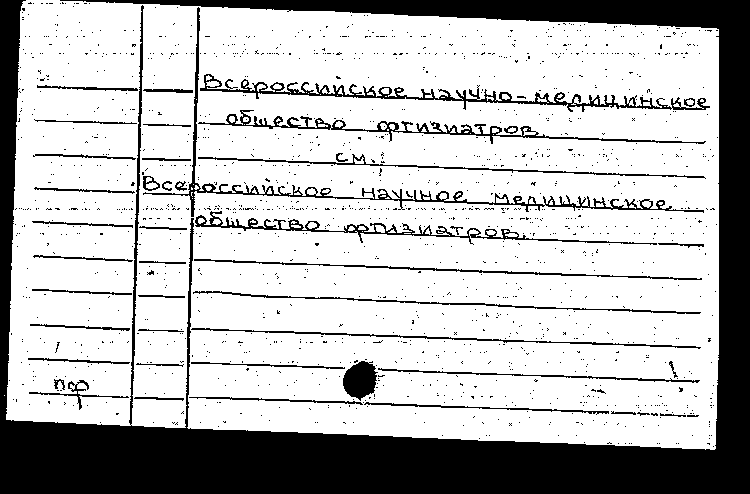 Всероссийское научно-медицинское
общество фтизиатров.
см.
Всероссийское научное медицинское
общество фтизиатров.
пф